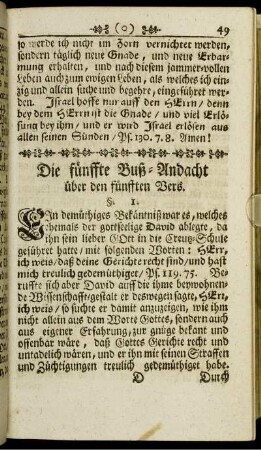 (0) 49
so werde ich nicht im Zorn vernichtet werden,
sondern täglich neue Gnade, und neue Erbar-
mung erhalten, und nach diesem jammer-vollen
Leben auch zum ewigen Leben, als welches ich ein-
zig und allein suche und begehre, eingeführet wer-
den. Israel hoffe nur auff den HErrn/ denn
bey dem HErrn ist die Gnade/ und viel Erlö-
sung bey ihm/ und er wird Israel erlösen aus
allen seinen Sünden/ Ps. 130. 7. 8. Amen!
Die fünffte Buß-Andacht
über den fünfften Vers.
§. 1.
EIn demüthiges Bekäntniß war es, welches
ehemals der gottselige David ablegte, da
ihn sein lieber GOtt in die Creutz-Schule
geführet hatte, mit folgenden Worten: HErr,
ich weis/ daß deine Gerichte recht sind/ und hast
mich treulich gedemüthiget/ Ps. 119. 75. Be-
ruffte sich aber David auff die ihme beywohnen-
de Wissenschafft/ gestalt er deswegen sagte, HErr,
ich weis/ so suchte er damit anzuzeigen, wie ihm
nicht allein aus dem Worte Gottes, sondern auch
aus eigener Erfahrung, zur gnüge bekant und
offenbar wäre, daß Gottes Gerichte recht und
untadelich wären, und er ihn mit seinen Straffen
und Züchtigungen treulich gedemüthiget habe.
D Durch